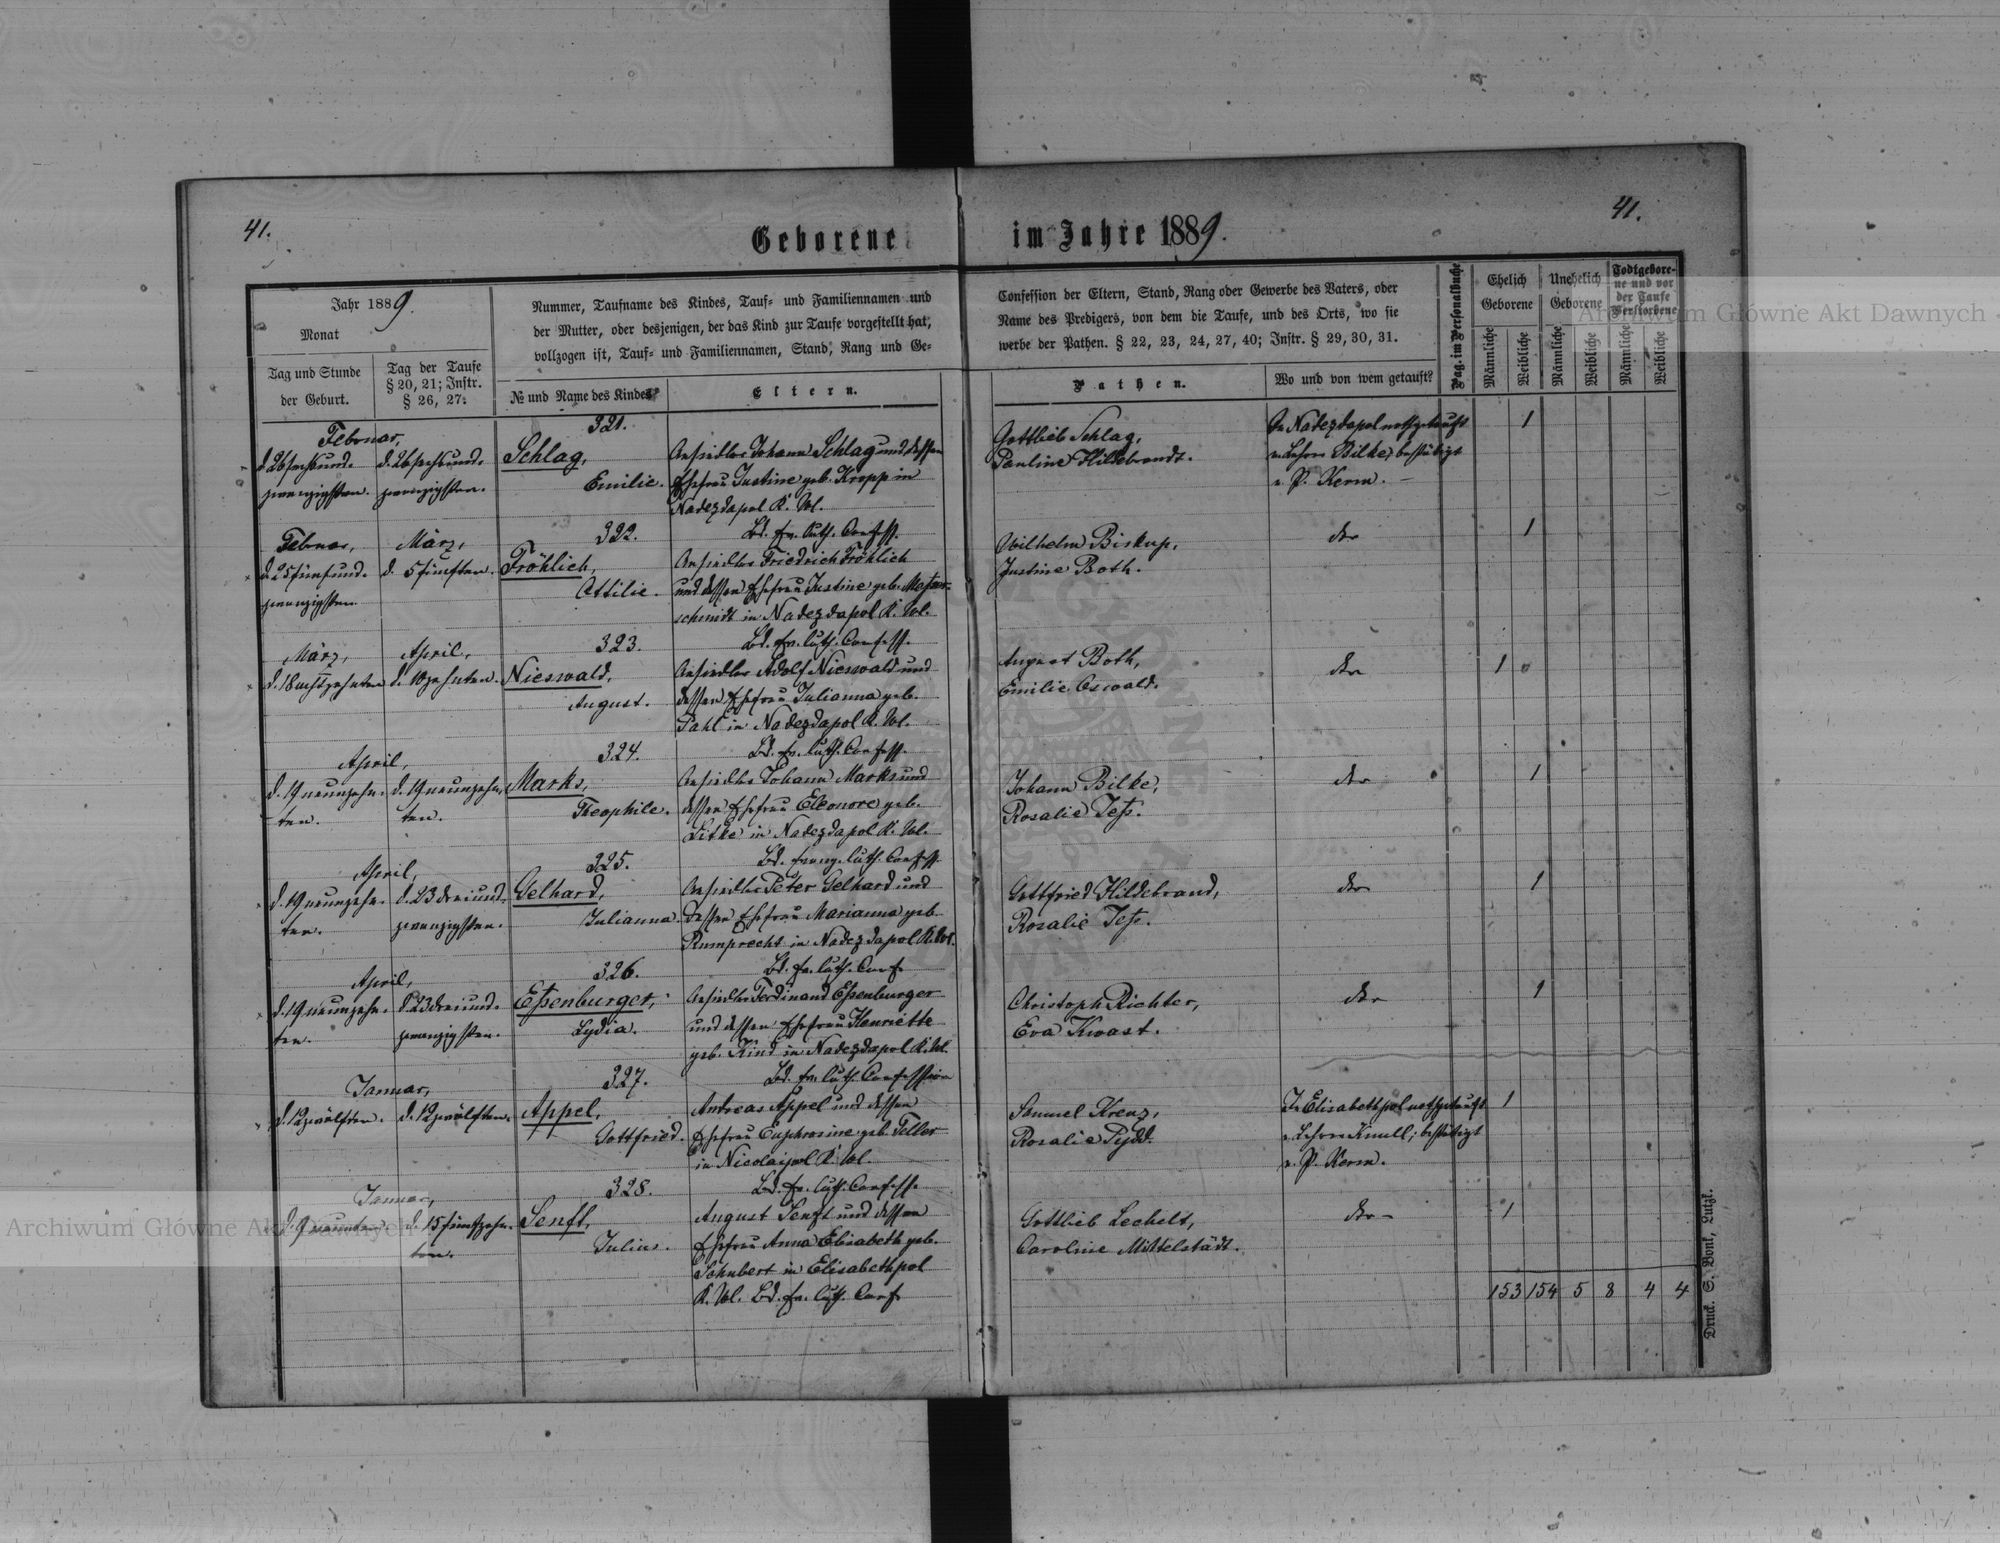 41.
Geborene im Jahre 1889.
41.
Jahr 1889.
Monat
Tag und Stunde
der Geburt.
Tag der Taufe
§ 20, 21; Instr.
§ 26, 27.
Nummer, Taufname des Kindes, Tauf- und Familiennamen und
der Mutter, oder desjenigen, der das Kind zur Taufe vorgestellt hat,
vollzogen ist, Tauf- und Familiennamen, Stand, Rang und Ge-
№ und Name des Kindes
Eltern.
Confession der Eltern, Stand, Rang oder Gewerbe des Vaters, oder
Name des Predigers, von dem die Taufe, und des Orts, wo sie
werbe der Pathen. § 22, 23, 24, 27, 40; Instr. § 29, 30, 31.
Pathen.
Wo und von wem getauft?
Pag. im Personalbuche
Ehelich
Geborene
Unehelich
Geborene
Todtgebore-
ne und vor
der Taufe
Verstorbene
Männliche
Weibliche
Männliche
Weibliche
Männliche
Weibliche
Februar,
d. 26 sechsund-
zwanzigsten.
d. 26 sechsund-
zwanzigsten.
321.
Schlag,
Emilie.
Ansiedler Johann Schlag und dessen
Ehefrau Justine geb. Kropp in
Nadezdapol K. Vol.
Bd. ev. luth. Confess.
Gottlieb Schlag,
Pauline Hildebrandt.
In Nadezdapol nothgetauft
v. Lehrer Bilke, bestätigt
v. P. Kerm.
1
Februar,
d. 25 fünfund-
zwanzigsten
März,
d. 5 fünften.
322.
Fröhlich,
Ottilie.
Ansiedler Friedrich Fröhlich
und dessen Ehefrau Justine geb. Messer-
schmidt in Nadezdapol K. Vol.
Bd. ev. luth. Confess.
Wilhelm Biskup,
Justine Both.
do
1
März,
d. 18 achtzehnten
April,
d. 10 zehnten.
323.
Nieswald,
August.
Ansiedler Adolf Nieswald und
dessen Ehefrau Julianna geb.
Pahl in Nadezdapol K. Vol.
Bd. ev. luth. Confess.
August Both,
Emilie Oswald.
do
1
April,
d. 19 neunzehn-
ten.
d. 19 neunzehn-
ten.
324.
Marks,
Theophile.
Ansiedler Johann Marks und
dessen Ehefrau Eleonore geb.
Litke in Nadezdapol K. Vol.
Bd. evang. luth. Confess
Johann Bilke,
Rosalie Jeß.
do
1
April,
d. 19 neunzehn-
ten.
d. 23 dreiund-
zwanzigsten.
325.
Gelhard,
Julianna.
Ansiedler Peter Gelhard und
dessen Ehefrau Marianna geb.
Rumprecht in Nadezdapol K. Vol.
Bd. ev. luth. Conf.
Gottfried Hildebrand,
Rosalie Jeß.
do
1
April,
d. 19 neunzehn-
ten.
d. 23 dreiund-
zwanzigsten.
326.
Eßenburger,
Lydia.
Ansiedler Ferdinand Eßenburger
und dessen Ehefrau Henriette
geb. Kind in Nadezdapol K. Vol.
Bd. ev. luth. Confession
Christoph Richter,
Eva Kwast.
do
1
Januar,
d. 12 zwölften.
d. 12 zwölften.
327.
Appel,
Gottfried.
Andreas Appel und dessen
Ehefrau Euphrosine geb. Teller
in Nicolaipol K. Vol.
Bd. ev. luth. Confess.
Samuel Krenz,
Rosalie
In Elisabethpol nothgetauft
v. Lehrer Knull; bestätigt
v. P. Kerm.
1
Januar,
d. 9 neunten.
d. 15 fünfzehn-
ten.
328.
Senft,
Julius.
August Senft und dessen
Ehefrau Anna Elisabeth geb.
Schubert in Elisabethpol
K. Vol. Bd. ev. luth. Conf.
Gottlieb Lechelt,
Caroline Mittelstädt.
do
1
153 154 5 8 4 4
Druck. S. Bonk, Lutzk.
Archiwum Główne Akt Dawnych
Archiwum Główne Akt Dawnych